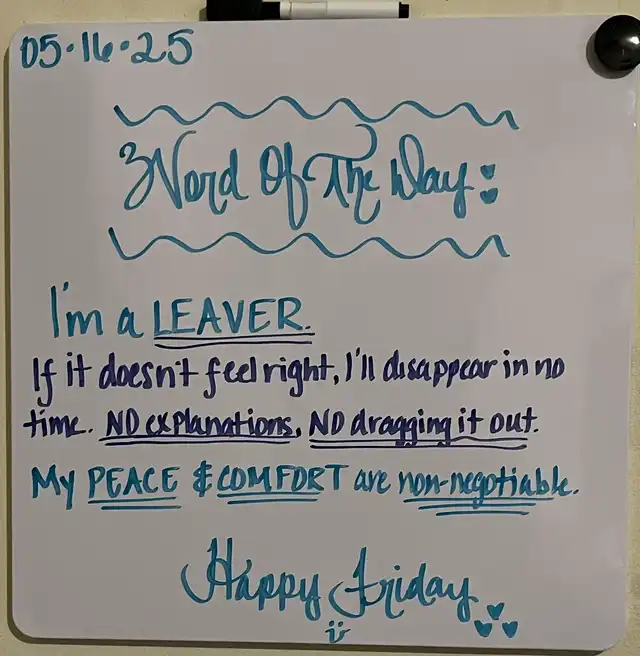 05•16•25
Word Of The Day:
I'm a LEAVER.
If it doesn't feel right, I'll disappear in no
time. NO explanations, NO dragging it out.
My PEACE & COMFORT are non-negotiable.
Happy Friday